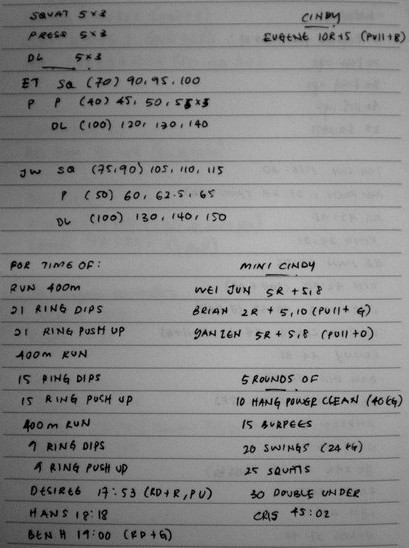 SQUAT 5×3
PRESS 5×3
DL 5×3
ET SQ (70) 90, 95, 100
P P (40) 45, 50, 55×3
DL (100) 120, 130, 140
JW SQ (75, 90) 105, 110, 115
P (50) 60, 62.5, 65
DL (100) 130, 140, 150
CINDY
EUGENE 10R+5 (PULL+B)
FOR TIME OF:
RUN 400m
21 RING DIPS
21 RING PUSH UP
400m RUN
15 RING DIPS
15 RING PUSH UP
400m RUN
9 RING DIPS
9 RING PUSH UP
DESIREE 17:53 (RD+R, PU)
HANS 18:18
BEN H 19:00 (RD+G)
MINI CINDY
WEI JUN 5R +5,8
BRIAN 2R + 5,10 (PULL+ G)
YANZEN 5R + 5,8 (PULL+O)
5 ROUNDS OF
10 HANG POWER CLEAN (40KG)
15 BURPEES
20 SWINGS (24KG)
25 SQUATS
30 DOUBLE UNDER
CRIS 45:02